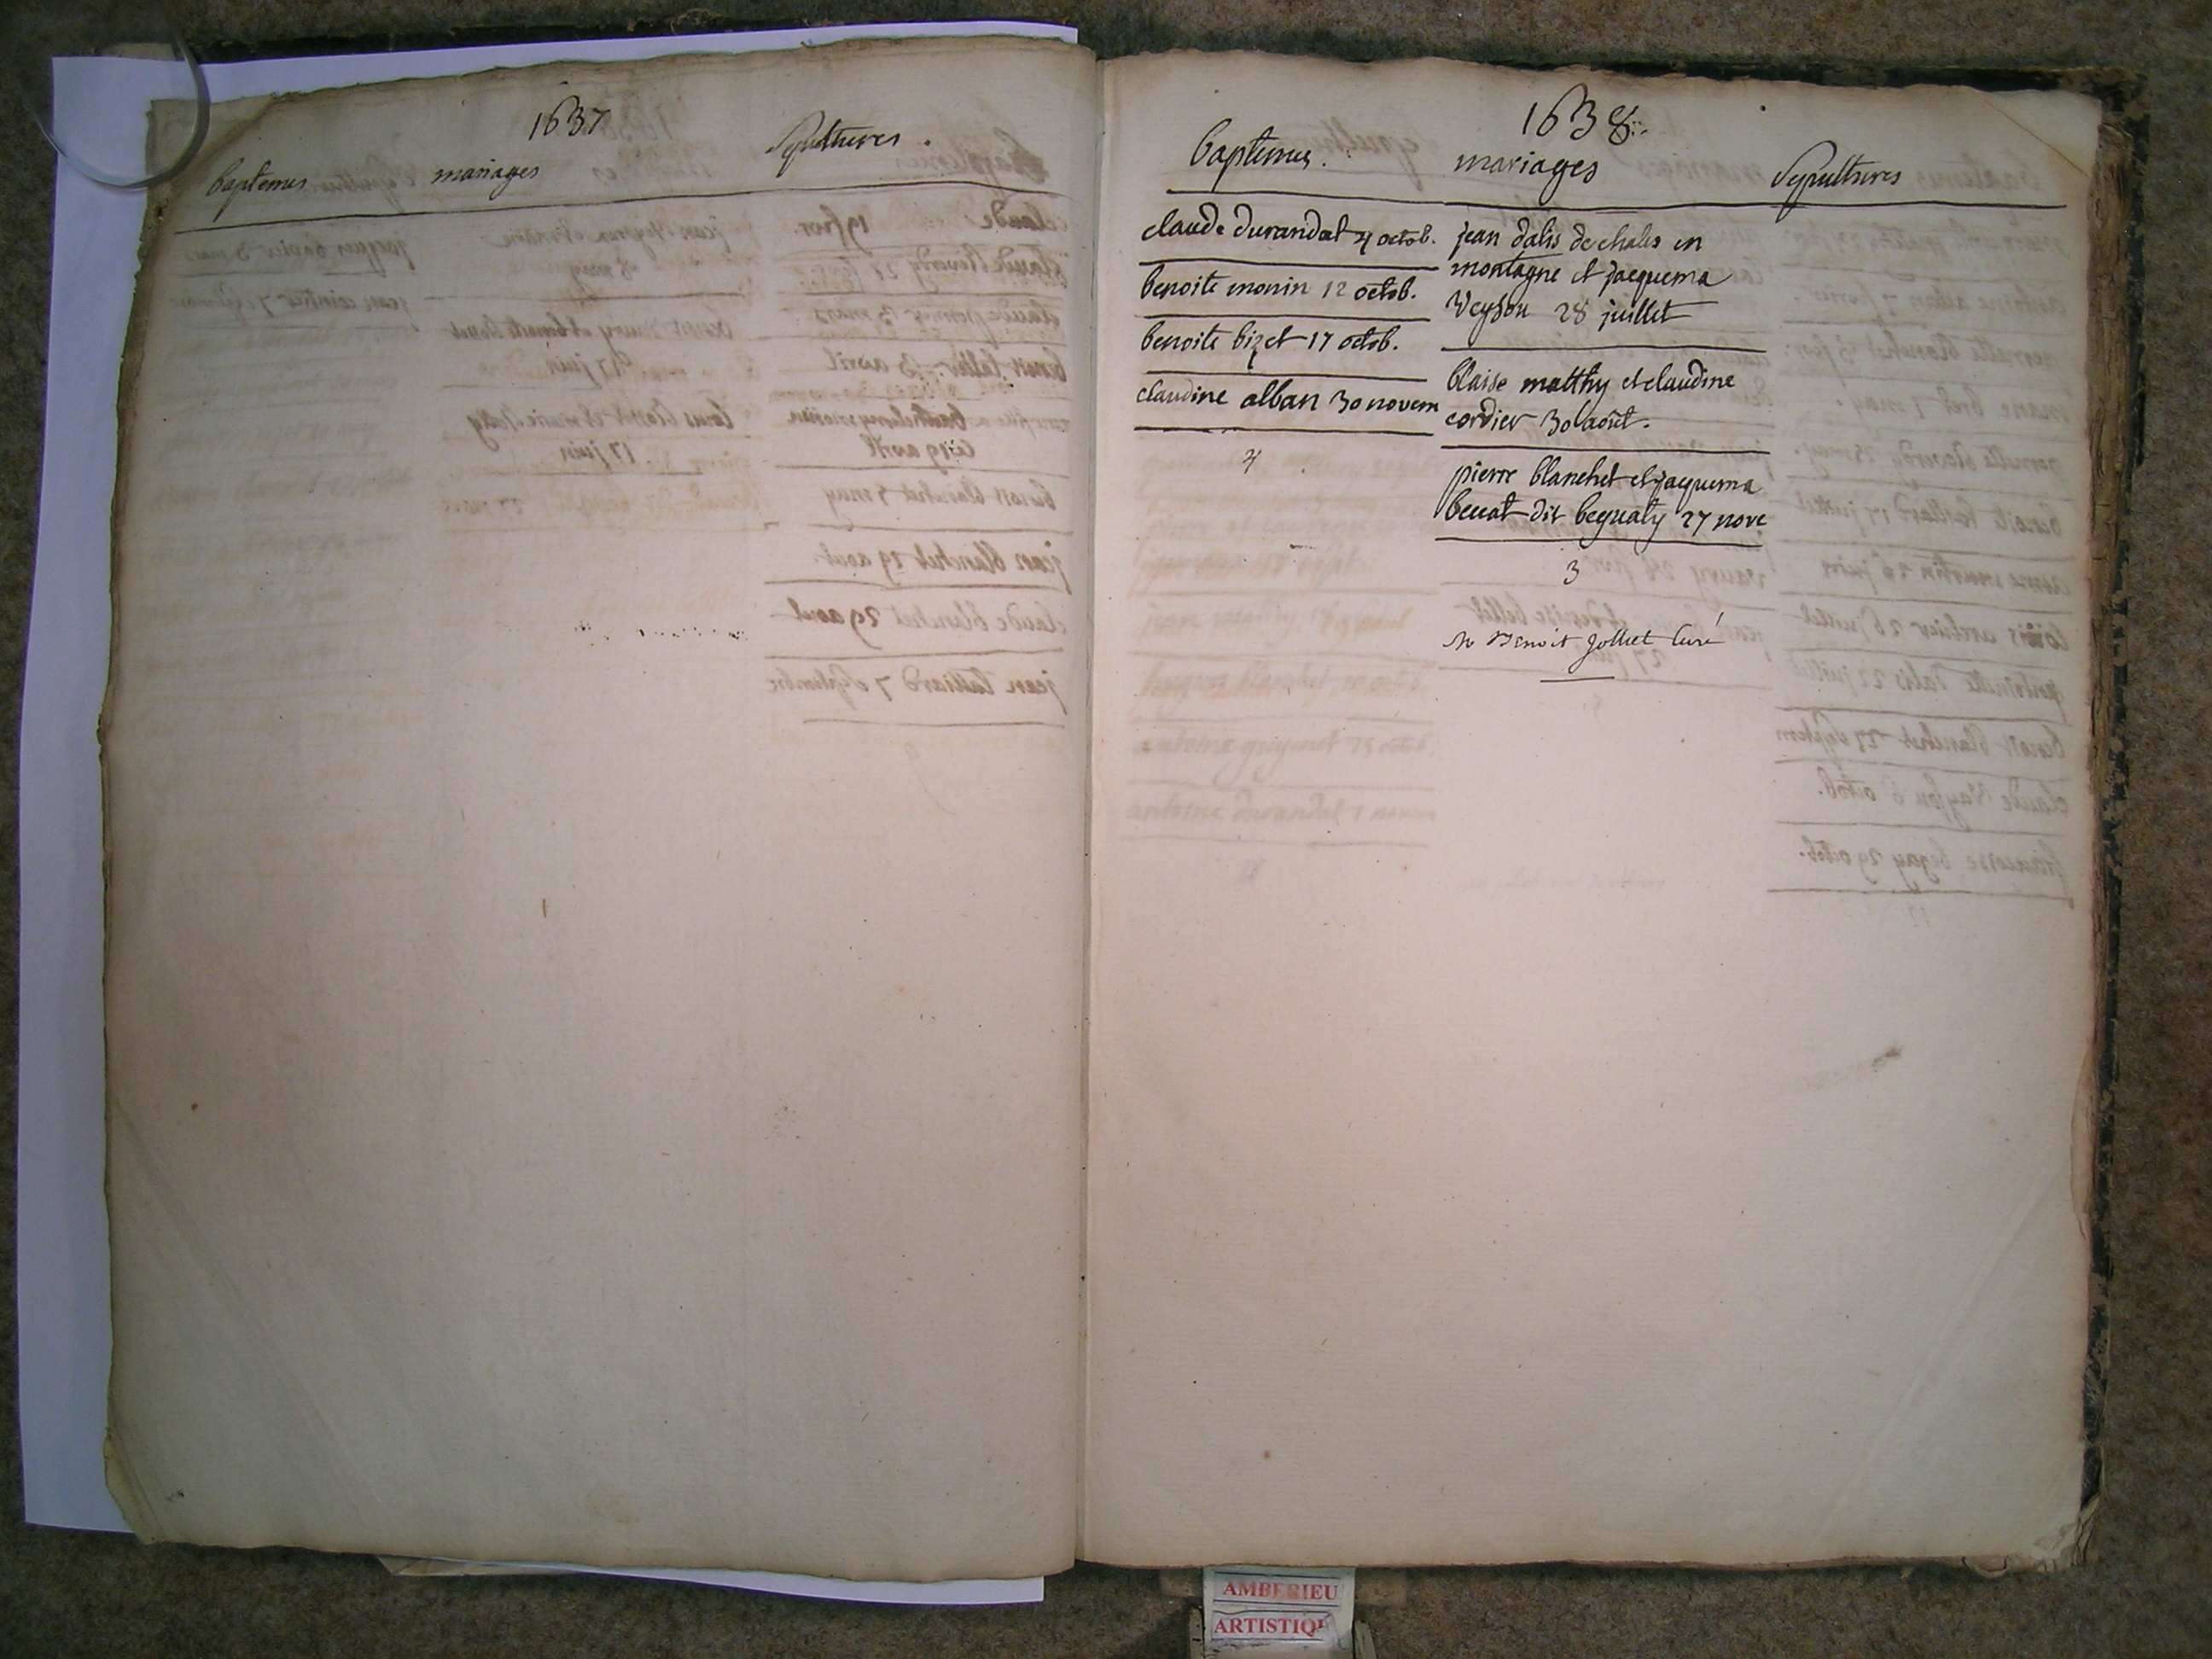 1637
baptemes mariages Sepultures.
1638
baptemes. mariages Sepultures
claude durandal 4 octob.
benoite monin 12 octob.
benoite bizet 17 octob.
claudine alban 30 novem
4
jean dalis de chales en
montagne et jaequema
Veyson 28 juillet
blaise matthy et claudine
cordier 30 août.
pierre blanchet et jaquema
becat dit bequaty 27 nove
3
Benoit Jolliet Curé
AMBERIEU
ARTISTIQU